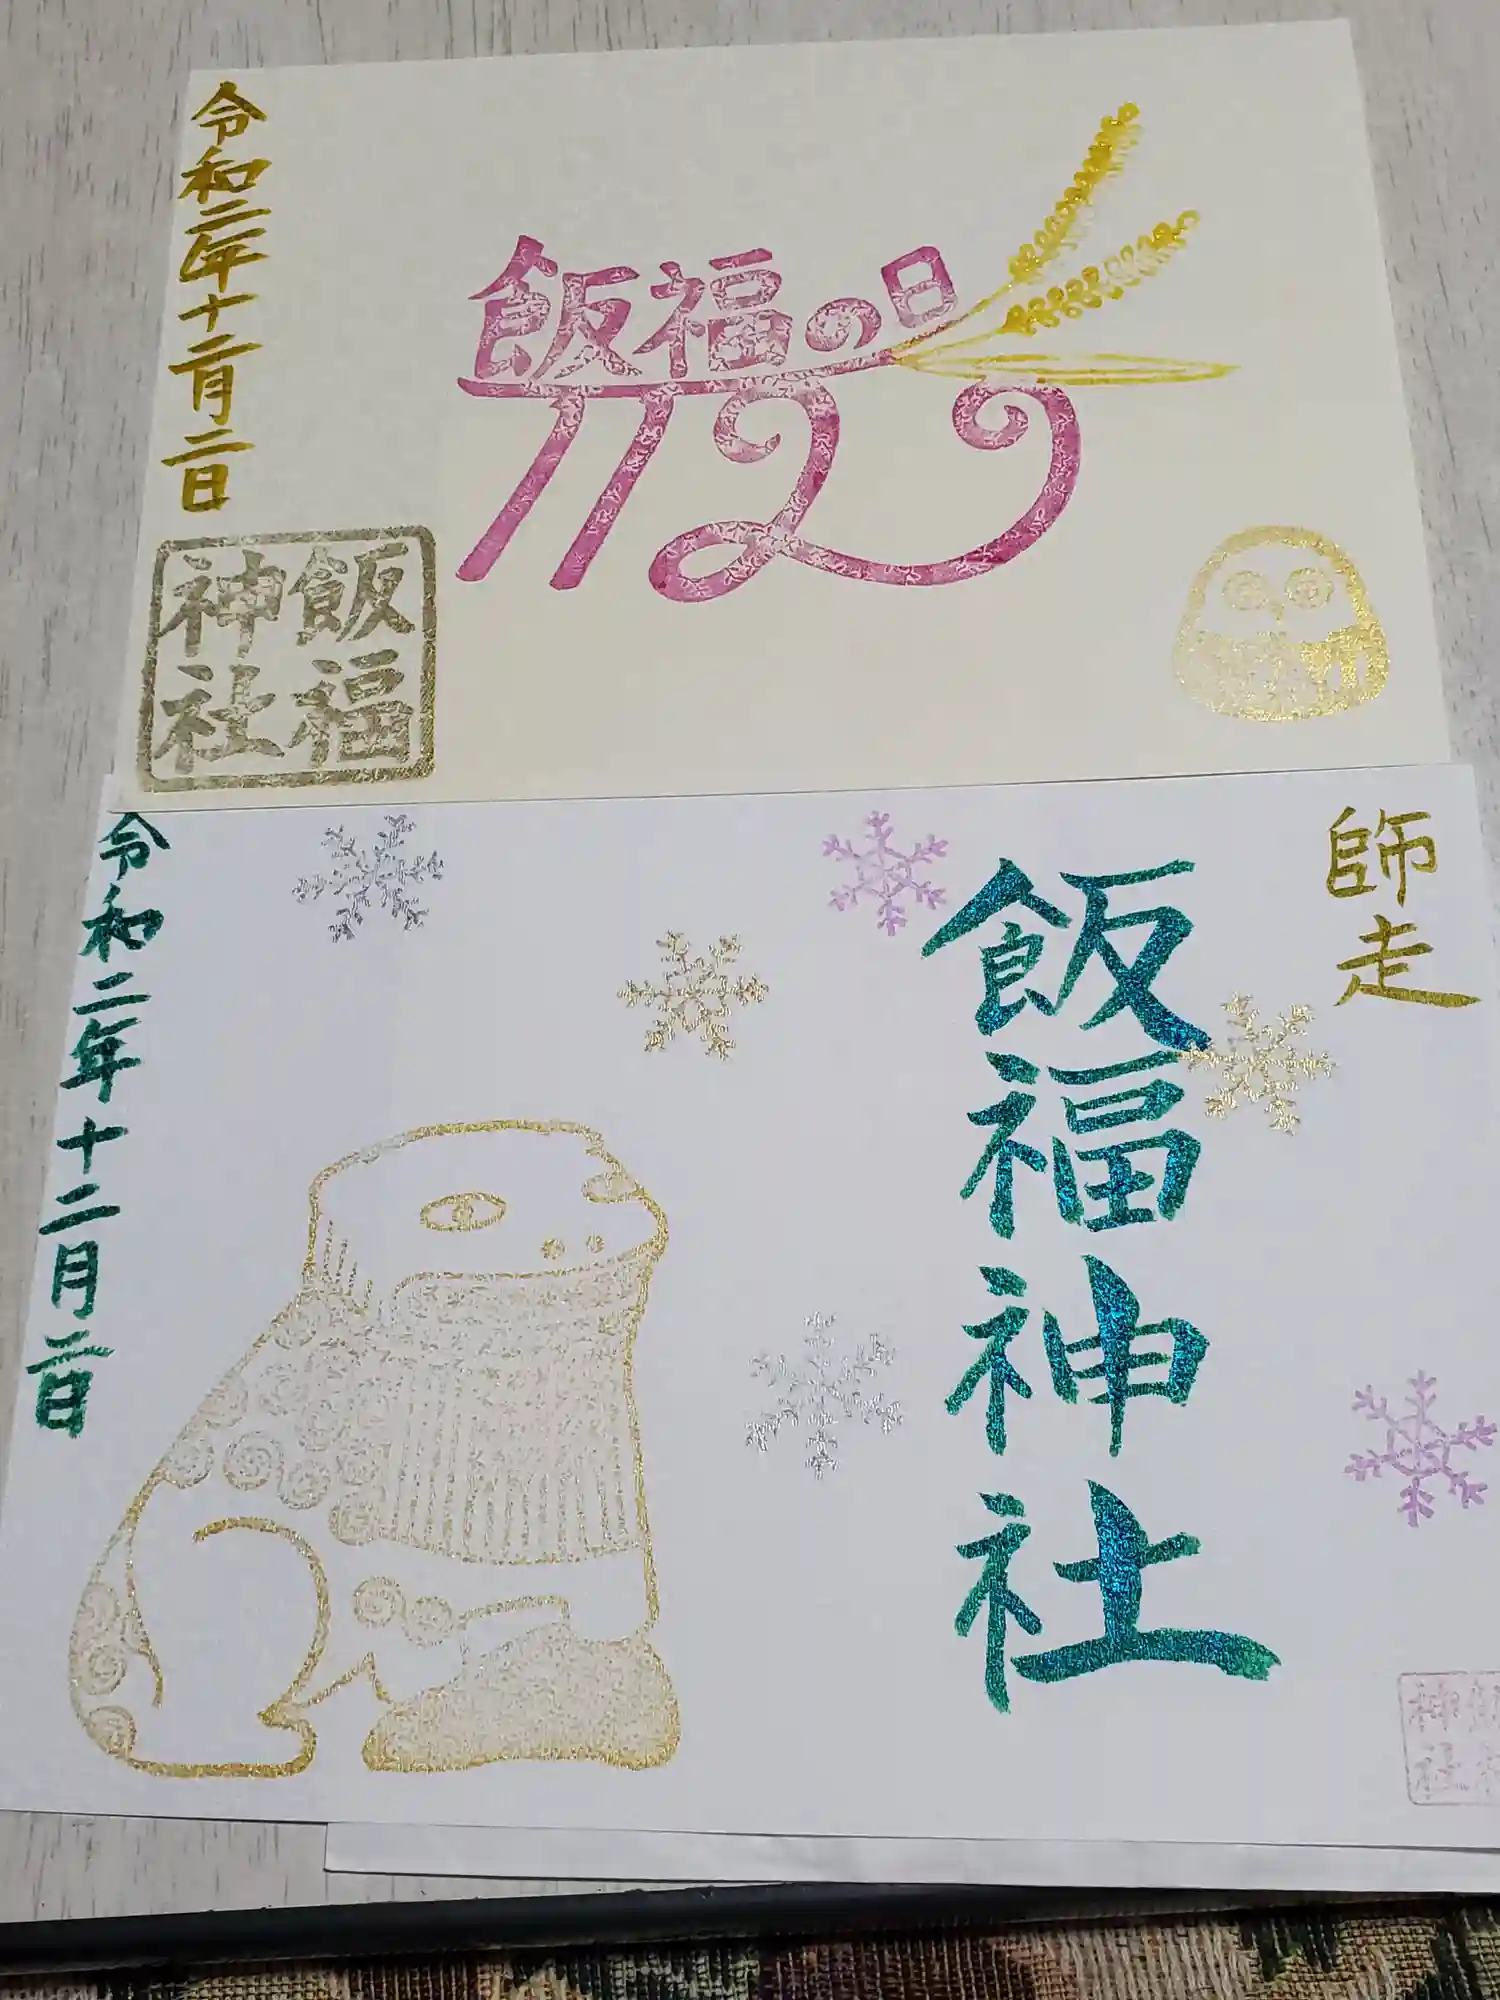 飯福の日
1129
令和二年十二月二日
飯福
神社
師走
飯福神社
令和二年十二月二日
神社